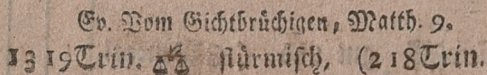 Ev. Vom Gichtbrüchigen, Matth. 9.
13 19 Trin. ♎ stürmisch, (2 18 Trin.